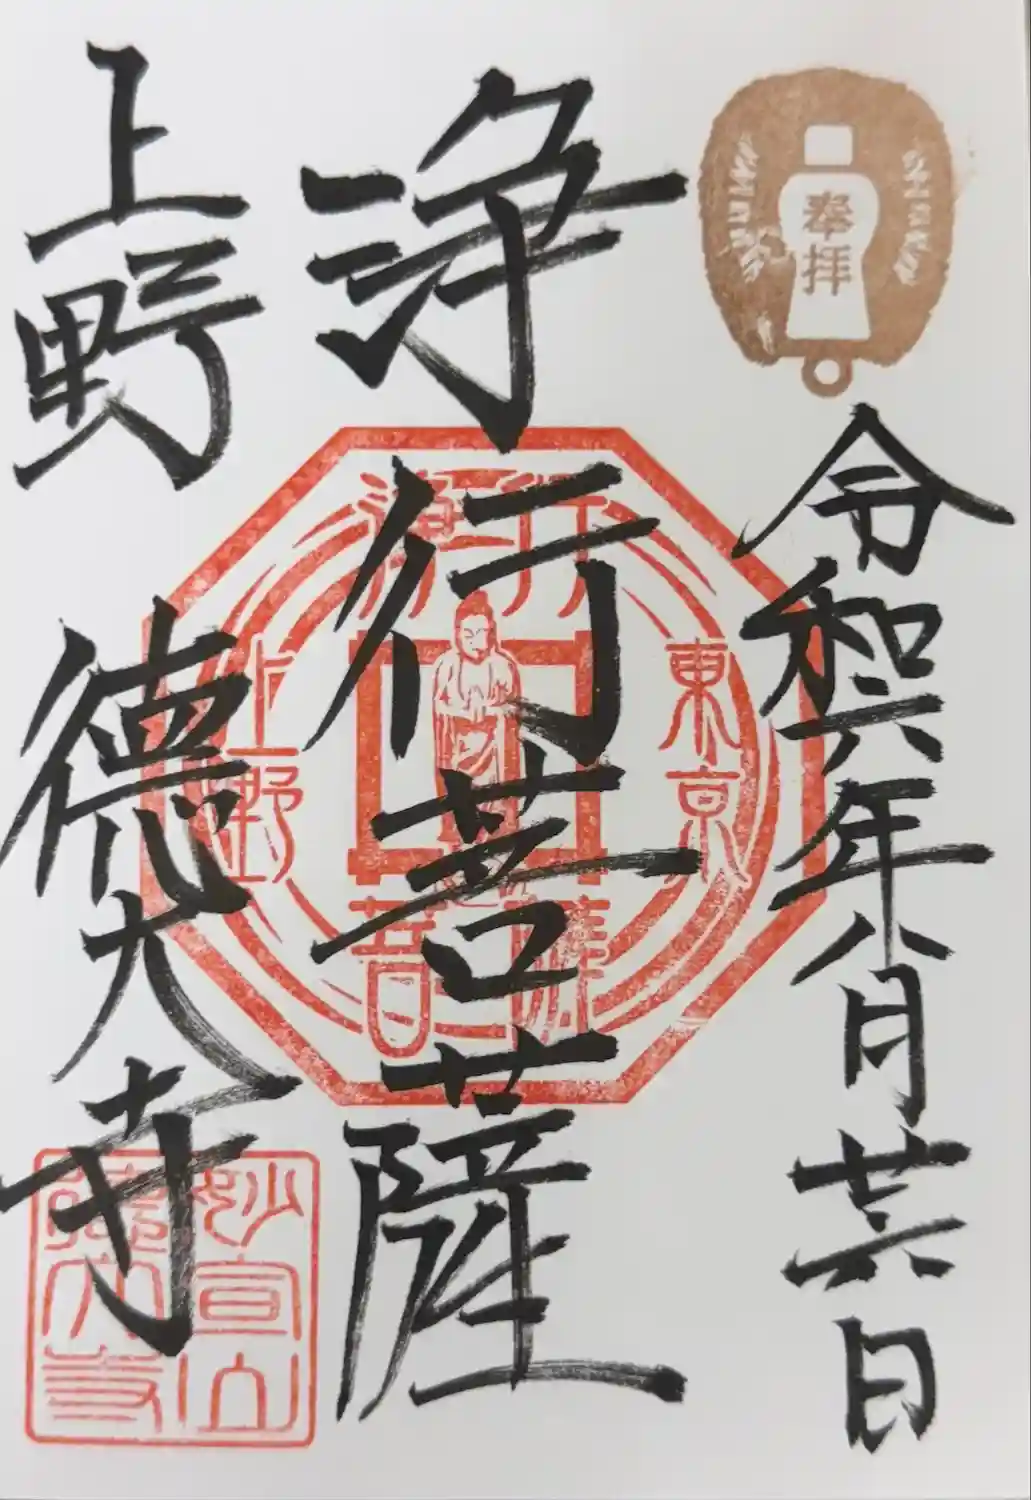 奉拝
令和六年八月廿六日
浄行菩薩
東京
浄行
菩薩
上野
上野 徳大寺
妙宣山
徳大寺